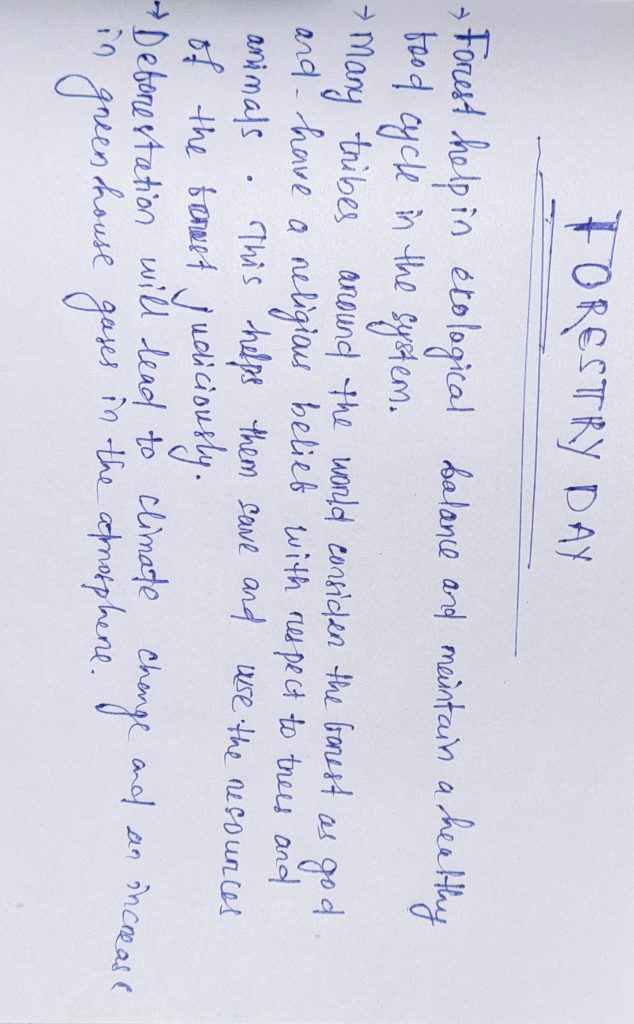 FORESTRY DAY
→ Forest help in ekological balance and meintain a healthy
food cycle in the system.
→ Many tribes around the world consider the forest as god
and have a religious belief with respect to trees and
animals. This helps them save and use the resources
of the forest judiciously.
→ Deforestation will lead to climate change and an increase
in green house gases in the atmosphere.